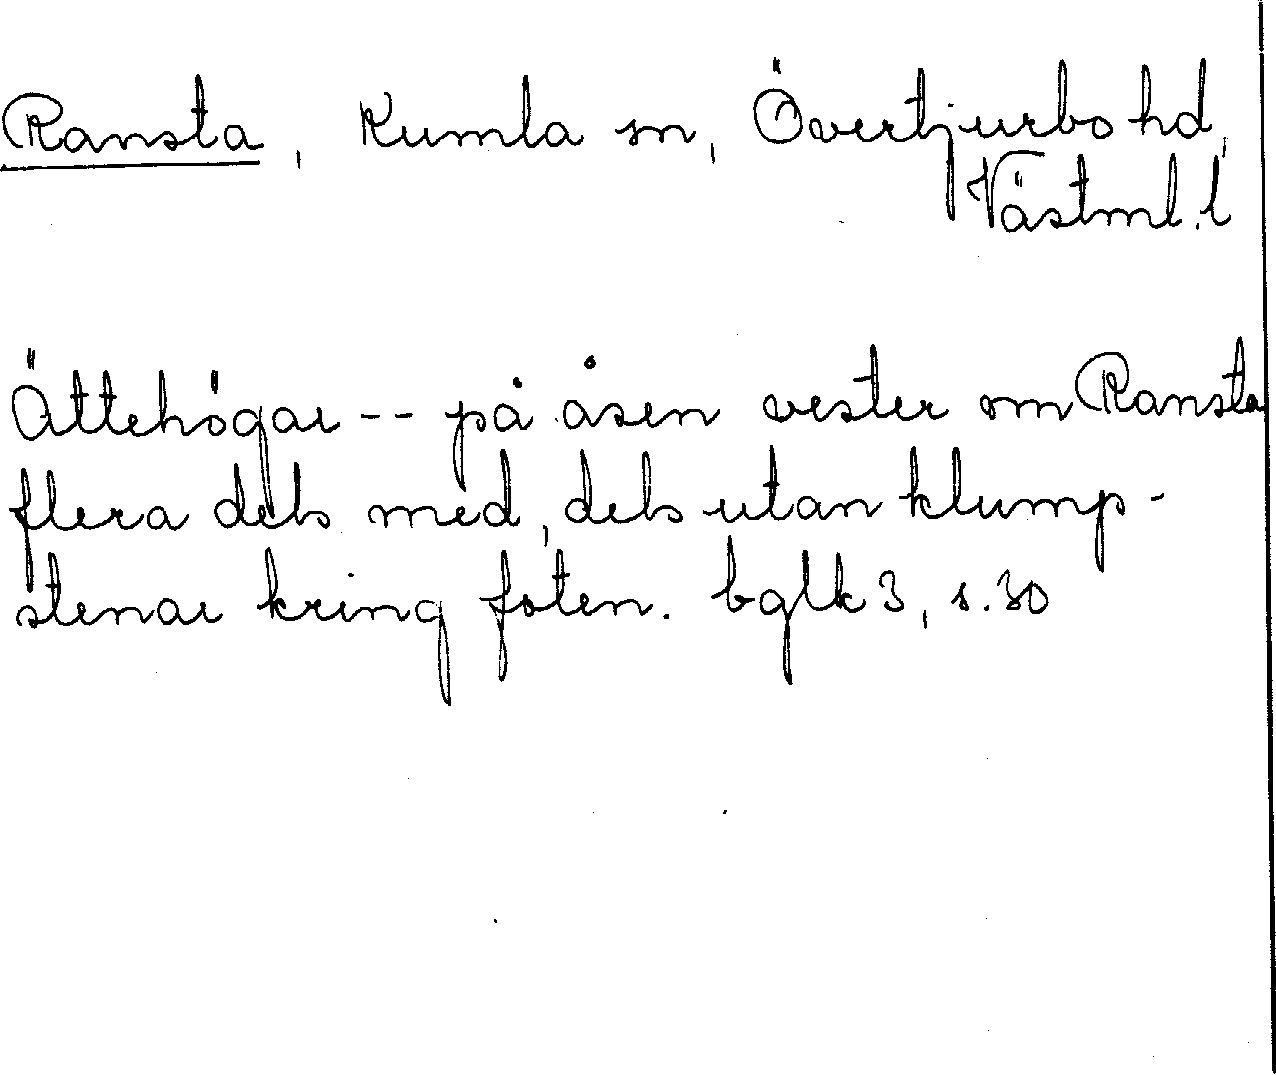 Ransta, Kumla sn, Övertjurbo hd,
Västml. l
Ättehögar -- på åsen vester om Ransta
flera dels med, dels utan klump-
stenar kring foten. bglk 3, s. 30